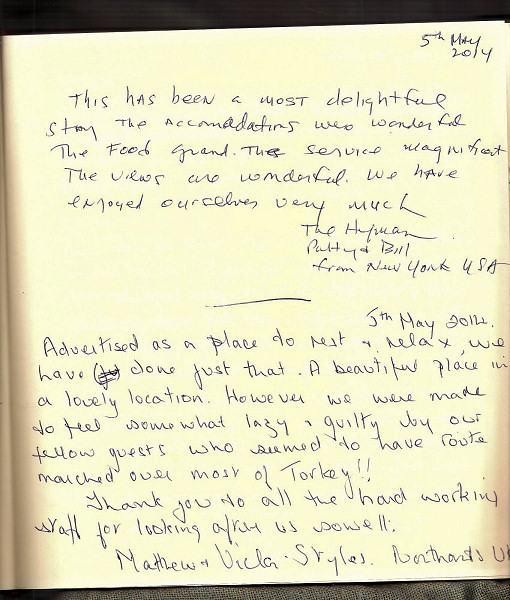 5th May
2014
This has been a most delightful
stay The Accomadations were wonderful
The Food grand. The service magnificent
The views are wonderful. We have
enjoyed ourselves very much
The Hyman
Patty & Bill
from New York USA
5th May 2014.
Advertised as a place to rest & relax, we
have done just that. A beautiful place in
a lovely location. However we were made
to feel somewhat lazy & guilty by our
fellow guests who seemed to have route
marched over most of Torkey!!
Thank you to all the hard working
staff for looking after us sowell.
Mathew & Vicki Styles. Northants UK